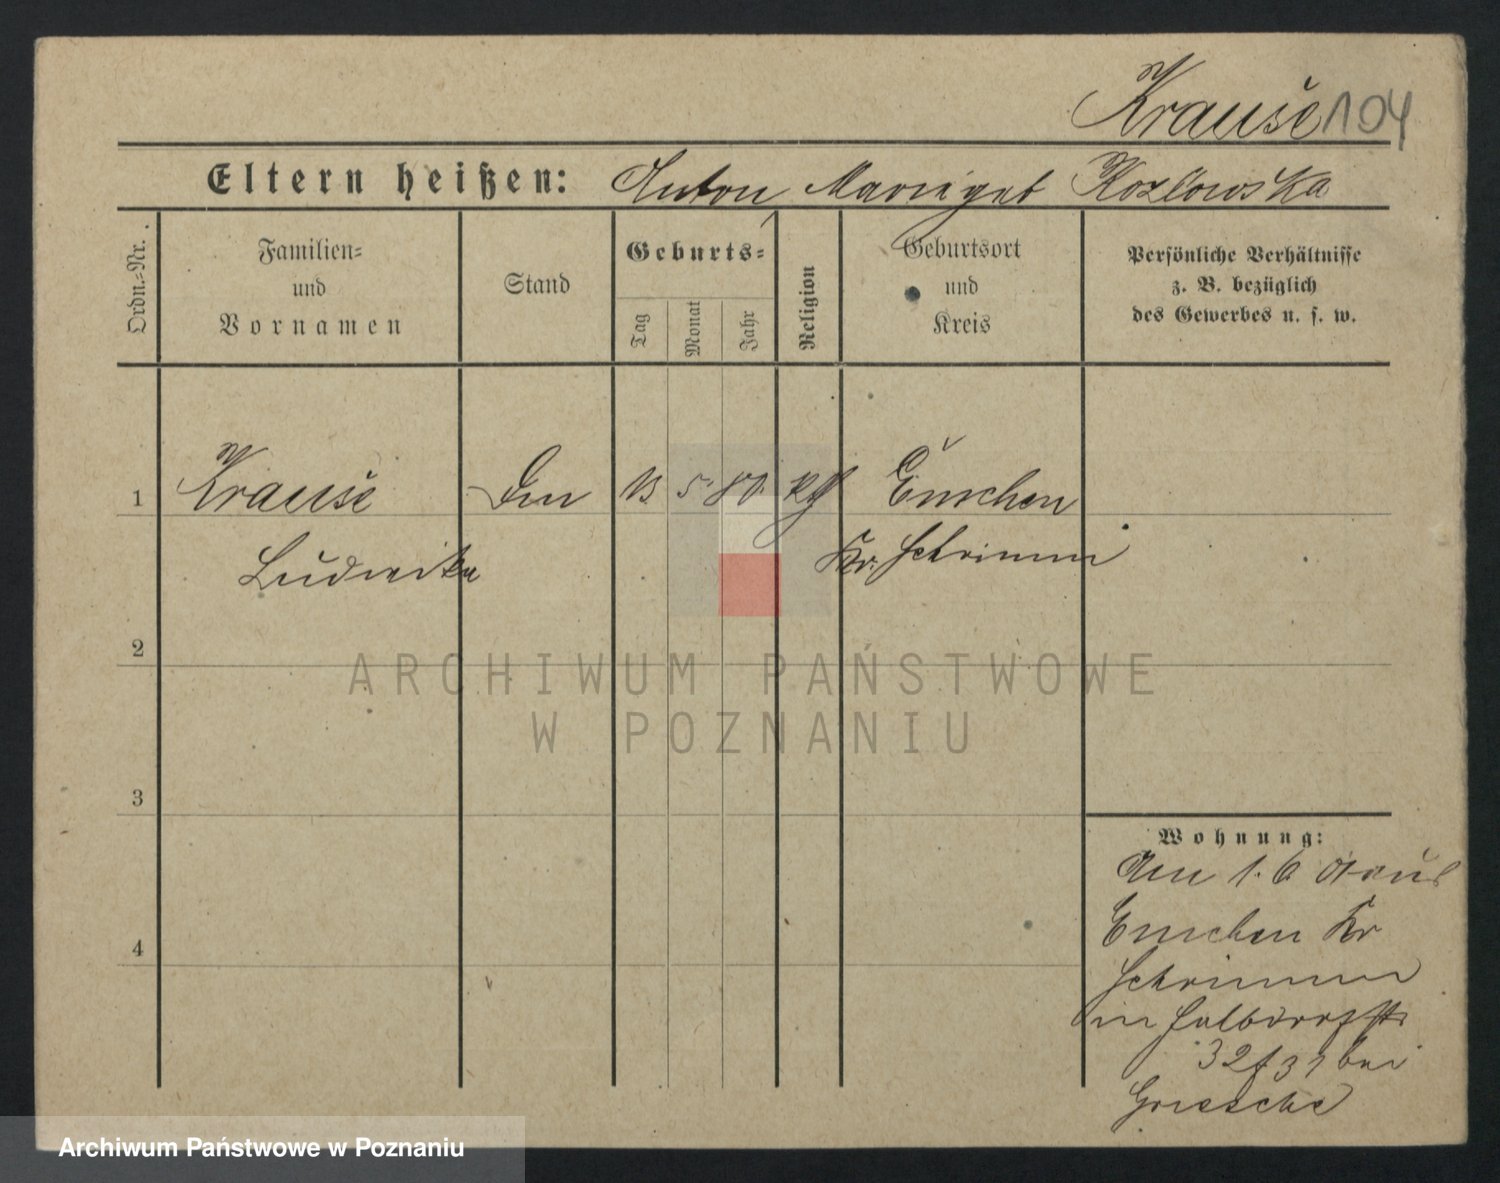 Krause 104
Eltern heißen: Anton Kozlowska
Ordn.-Nr.
Familien-
und
Vornamen
Stand
Geburts-
Tag
Monat
Jahr
Religion
Geburtsort
und
Kreis
Persönliche Verhältnisse
z. B. bezüglich
des Gewerbes u. s. w.
1 Krause 13 5. 80. Emchen
Ludwika Kr. Schrimm
2
ARCHIWUM PAŃSTWOWE
W POZNANIU
3
Wohnung:
Am 1. 6 aus
Emchen Kr
4
Schrimm
in Halbdorfstr
32 31 bei
Griesche
Archiwum Państwowe w Poznaniu